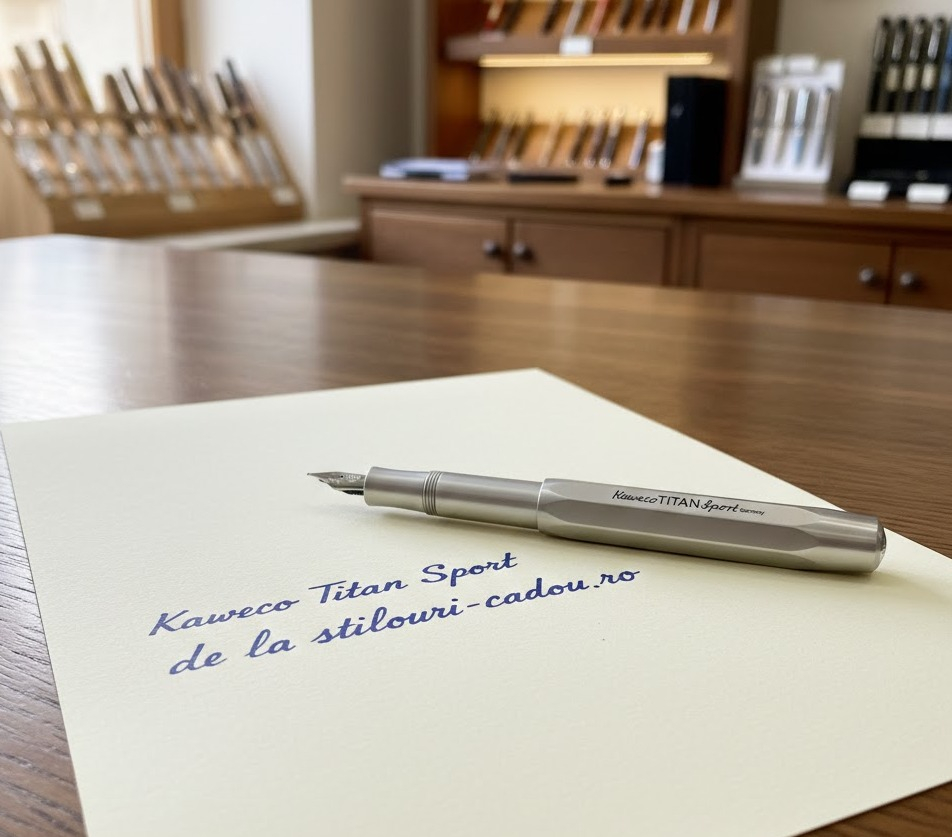 Kaweco TITAN Sport Germany
Kaweco Titan Sport
de la stilouri-cadou.ro